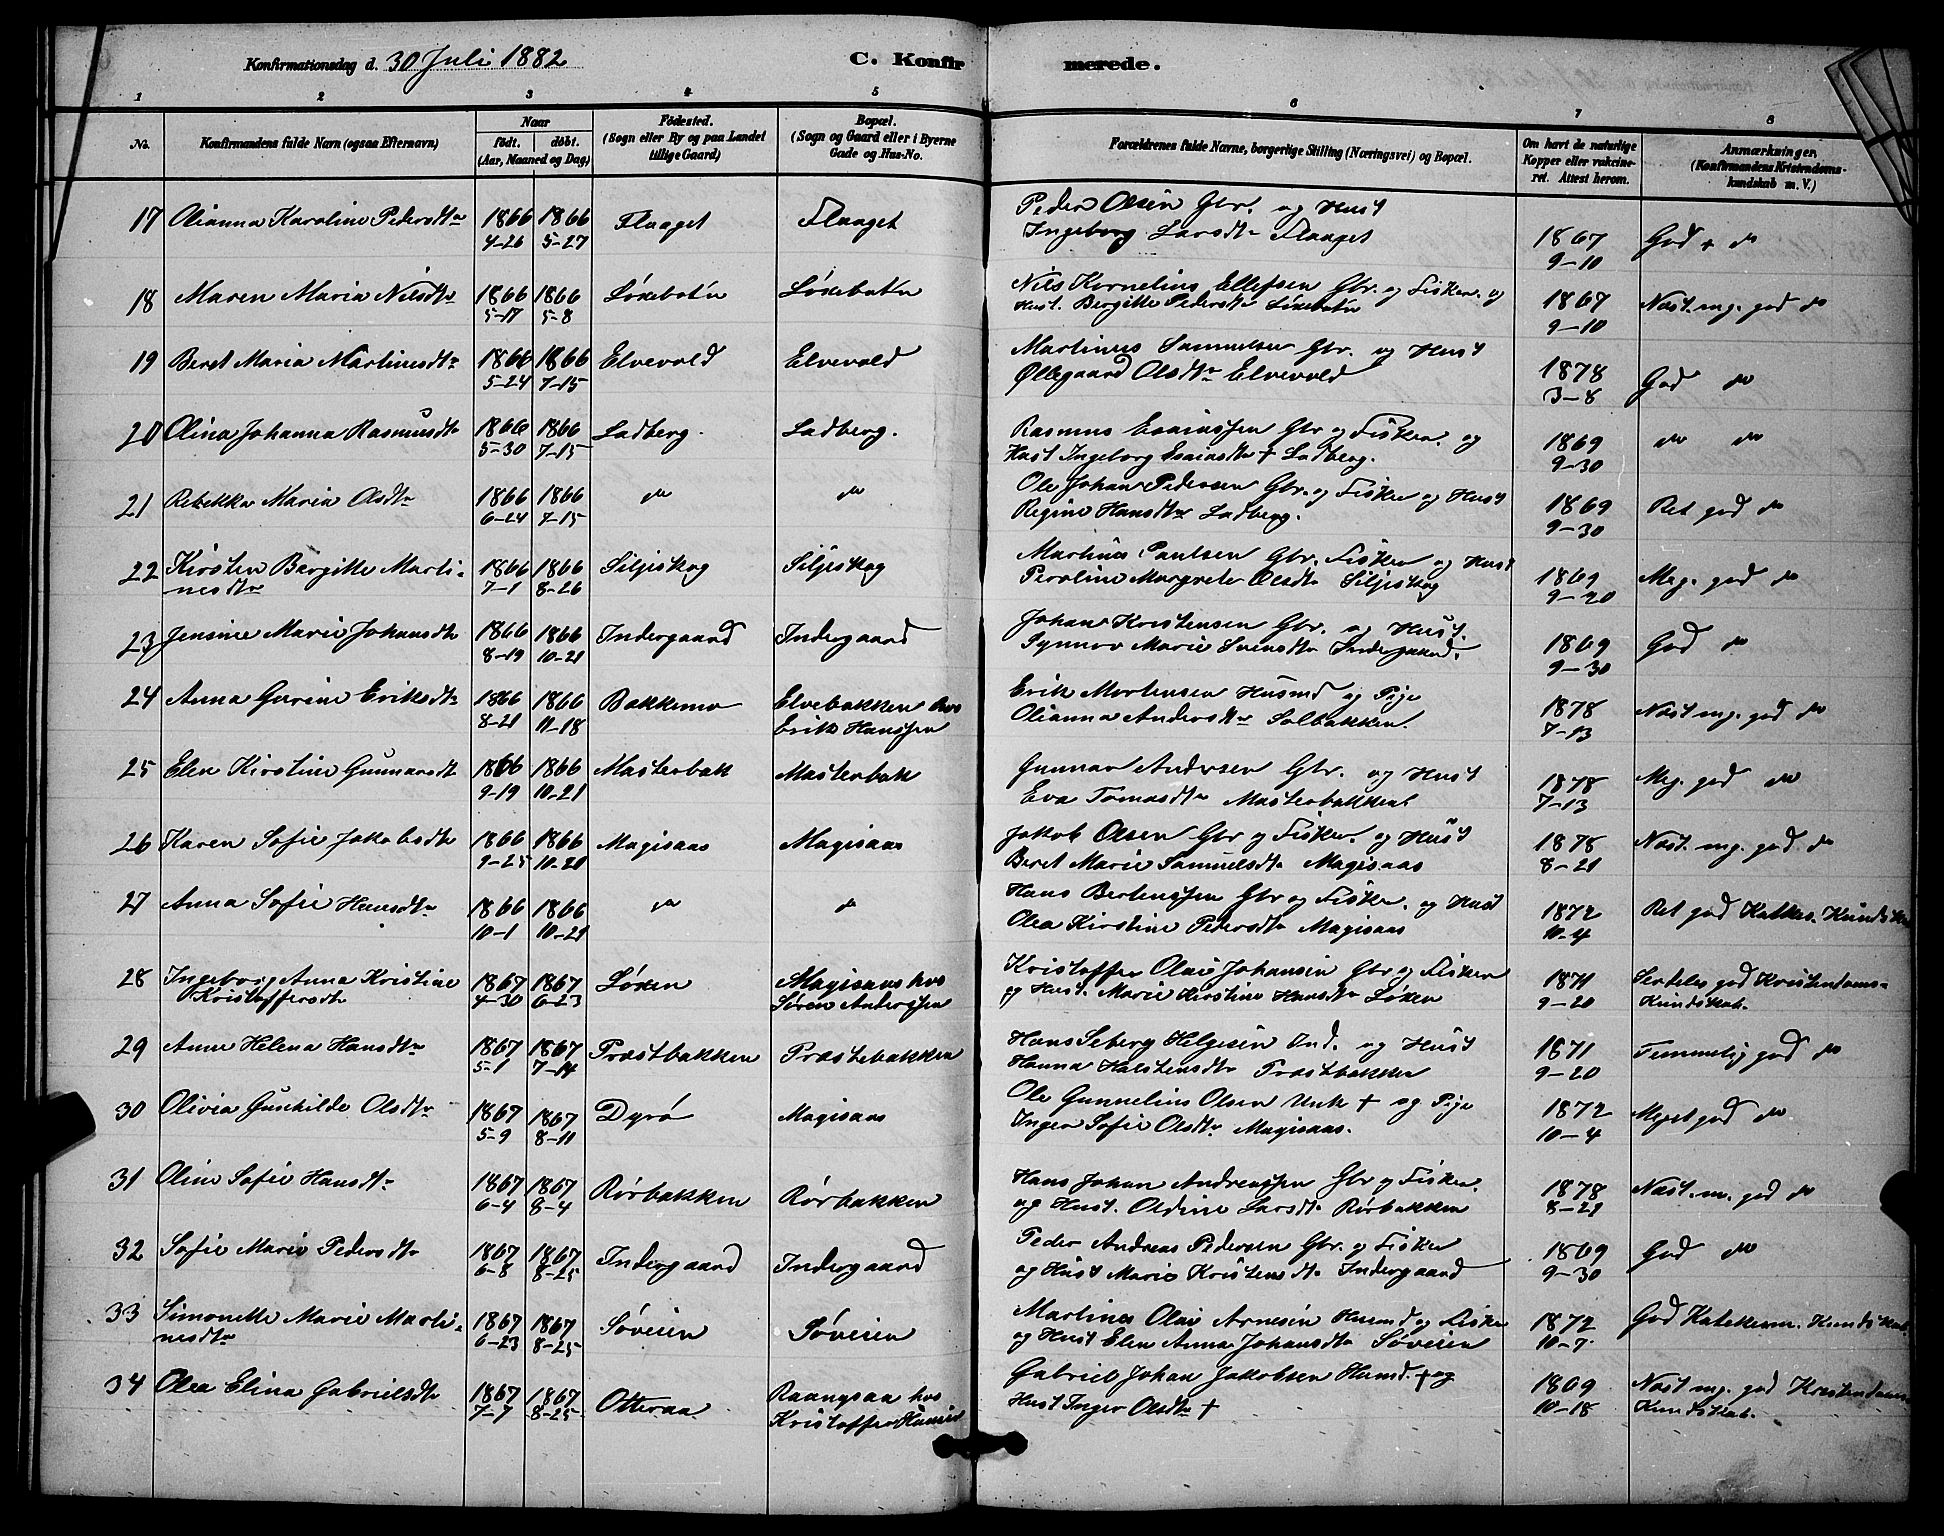 Konfirmationsdag d. 30 Juli 1882
C. Konfirmerede.
1 2 3 4 5 6 7 8
No.
Konfirmandens fulde Navn (ogsaa Efternavn)
Naar
født. døbt.
(Aar, Maaned og Dag)
Fødested.
(Sogn eller By og paa Landet
tillige Gaard)
Bopæl.
(Sogn og Gaard eller i Byerne
Gade og Hus-No.
Forældrenes fulde Navne, borgerlige Stilling (Næringsvei) og Bopæl.
Om havt de naturlige
Kopper eller vakcine-
ret. Attest herom.
Anmærkninger,
(Konfirmandens Kristendoms-
kundskab m. V.)
17 Olianna Karoline Pedersdtr 1866 1866 Flaaget Flaaget Peder Olsen Gbr. og Hust
4-26 5-27 Ingeborg Larsdtr Flaaget 1867 God
9-10
18 Maren Maria Nilsdtr 1866 1866 Løksebotn Løksebotn Nils Kornelius Ellefsen Gbr. og Fisker. og
5-17 5-8 Hust. Bergitte Pedersdtr Løksebotn 1867 Næst. mg. god do
9-10
19 Beret Maria Martinusdtr 1866 1866 Elvevold Elvevold Martinus Samuelsen Gbr. og Hust
5-24 7-15 Øllegaard Olsdtr Elvevold 1878 God do
3-8
20 Olina Johanna Rasmusdtr 1866 1866 Ladberg. Ladberg. Rasmus Esaiassen Gbr og Fisker. og
5-30 7-15 Hust Ingeborg Esaiasdtr + Ladberg. 1869 do do
9-30
21 Rebekka Maria Olsdtr 1866 1866 do do Ole Johan Pedersen Gbr. og Fisker og Hust
6-24 7-15 Regine Hansdtr Ladberg. 1869 Ret god do
9-30
22 Kirsten Bergitte Marti- 1866 1866 Siljeskog Siljeskog Martinus Paulsen Gbr. Fisker og Hust
nusdtr 7-1 8-26 Peroline Margrete Olsdtr Siljeskog 1869 Meg. god do
9-20
23 Jensine Marie Johansdtr 1866 1866 Indergaard Indergaard Johan Kristensen Gbr. og Hust.
8-19 10-21 Synnov Marie Svensdtr Indergaard. 1869 God do
9-30
24 Anna Gurine Eriksdtr 1866 1866 Bakkemo Elvebakken hos Erik Mortensen Husmd og Pige
8-21 11-18 Erik Hanssen Olianna Andersdtr Solbakken. 1878 Næst mg. god do
7-13
25 Elen Kirstine Gunnarsdtr 1866 1866 Masterbak Masterbak Gunnar Andersen Gbr. og Hust
9-19 10-21 Eva Tomasdtr Masterbakken 1878 Mg. god do
7-13
26 Karen Sofie Jakobsdtr 1866 1866 Magisaas Magisaas Jakob Olsen Gbr og Fisker. og Hust
9-25 10-21 Beret Marie Samuelsdtr Magisaas 1878 Næst. mg. god do
8-21
27 Anna Sofie Hansdtr 1866 1866 do do Hans Bertenssen Gbr og Fisker. og Hust
10-1 10-21 Olea Kirstine Pedersdtr Magisaas 1872 Ret god
10-4
28 Ingeborg Anna Kristine 1867 1867 Løksen Magisaas hos Kristoffer Olai Johansen Gbr og Fisker
Kristoffersdtr 4-30 6-23 Søren Anderssen og Hust. Marie Kirstine Hansdtr Løksen 1871 god Kristendoms-
9-20 Kundskab.
29 Anne Helena Hansdtr 1867 1867 Præstbakken Præstebakken Hans Seberg Helgesen Ind. og Hust
5-1 7-14 Hanna Halstensdtr Præstbakken 1871 Temmelig god do
9-20
30 Olivia Gunhilde Olsdtr 1867 1867 Dyrø Magisaas Ole Gunnelius Olsen Unk + og Pige
5-9 8-11 Inger Sofie Olsdtr Magisaas. 1872 Meget god do
10-4
31 Oline Sofie Hansdtr 1867 1867 Rørbakken Rørbakken Hans Johan Andreassen Gbr og Fisker.
6-4 8-4 og Hust. Oldine Larsdtr Rørbakken 1878 Næst. m. god do
8-21
32 Sofie Marie Pedersdtr 1867 1867 Indergaard Indergaard Peder Andreas Pedersen Gbr. og Fisker
6-8 8-25 og Hust Marie Kristensdtr Indergaard 1869 God do
9-30
33 Simonette Marie Marti- 1867 1867 Søveien Søveien Martines Olai Arnesen Husmd og Fisker
nesdtr 6-23 8-25 og Hust Elen Anna Johansdtr Søveien 1872 God Katekism. Kundskab.
10-7
34 Olea Elina Gabrielsdtr 1867 1867 Otteraa Raangsaa hos Gabriel Johan Jakobsen Husmd. + og
7-7 8-25 Kristoffer Hust Inger Olsdtr + 1869 Næst mg. god Kristendoms
10-18 Kundskab.